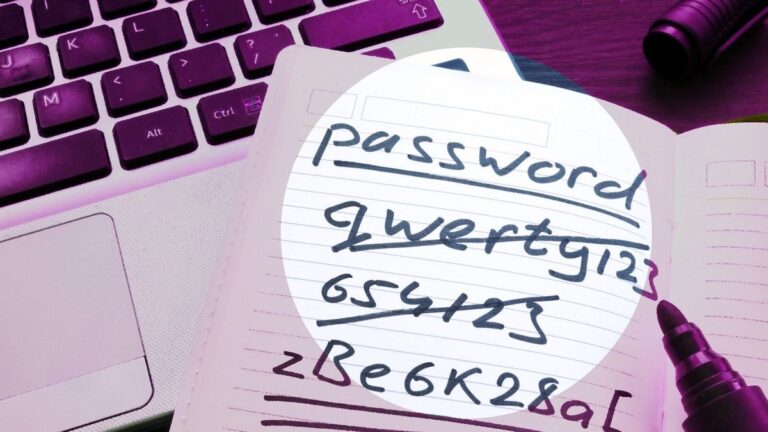 J
K
L
:
;
"
'
Shift
M
<
,
>
.
?
/
Alt
Ctrl
password
qwerty123
654123
zBe6K28a[